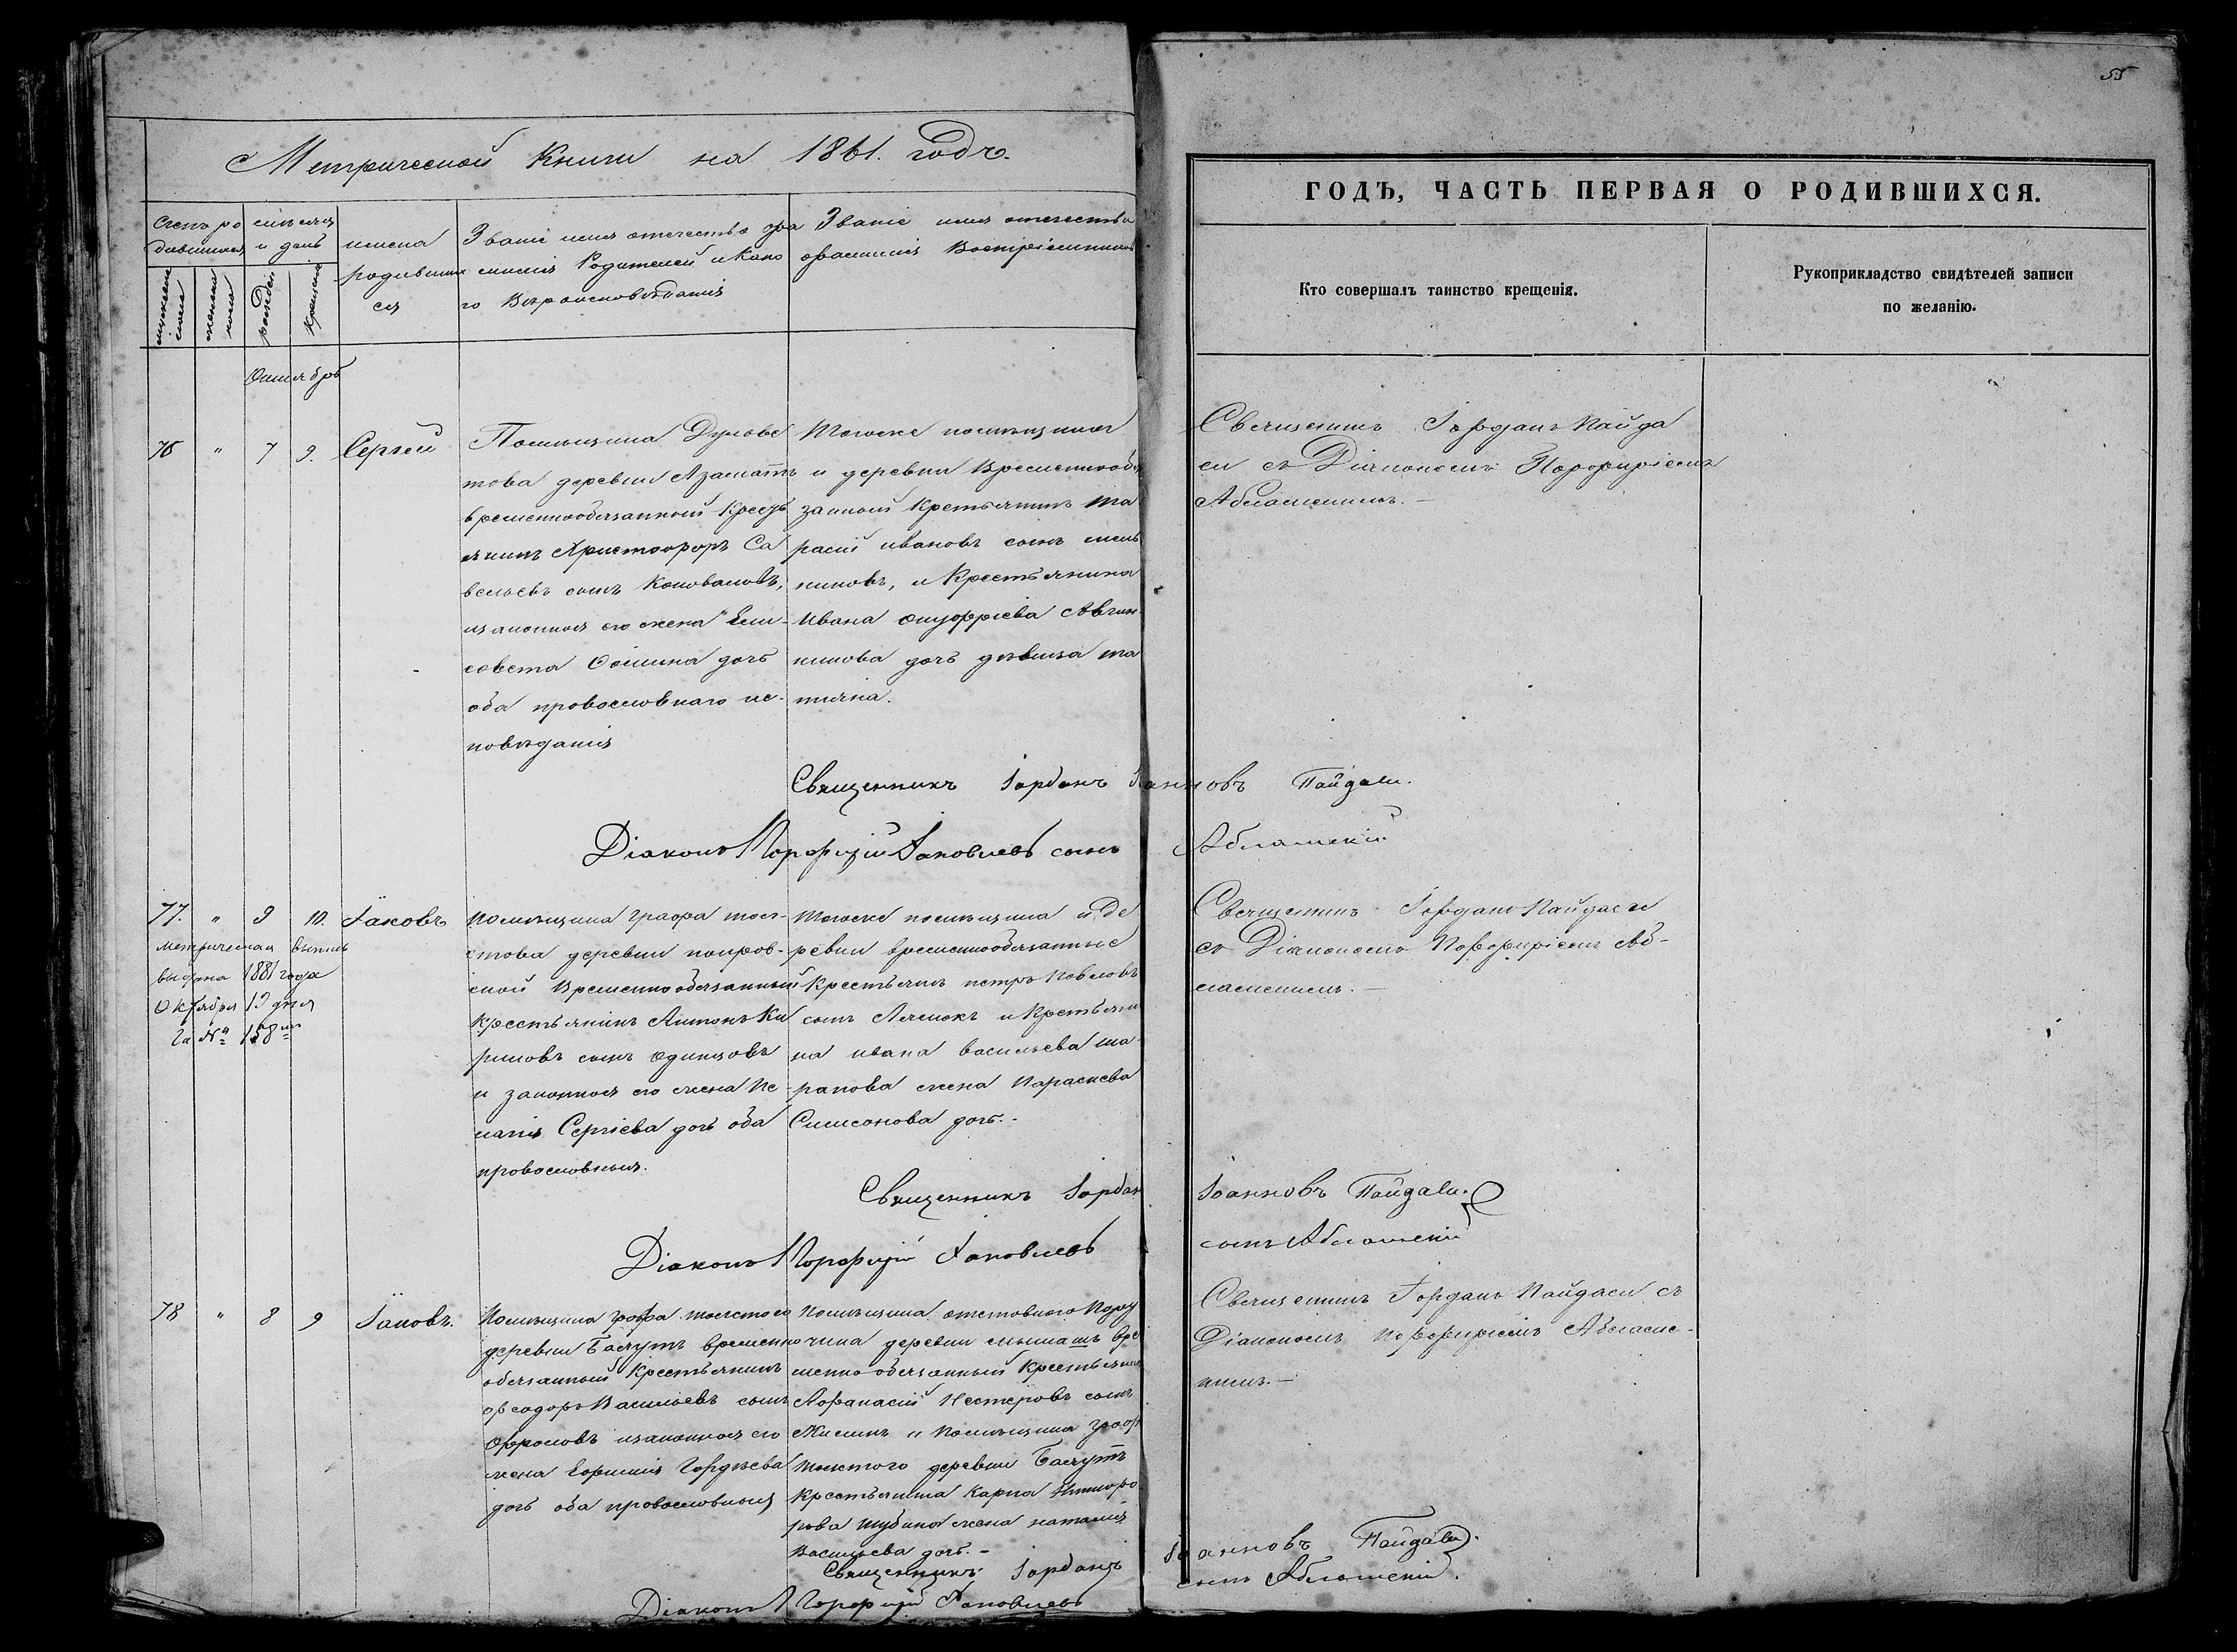 55
Метрической Книги на 1861. годъ.
ГОДЪ, ЧАСТЬ ПЕРВАЯ О РОДИВШИХСЯ.
Счетъ ро
дившихся
мужеска
пола
женска
пола
и день
рожден
крещенія
имена
родивших
ся
Званіе имя отчество фа
миліи Родителей и како
го Вѣроисповѣданія
Званіе имя отчество
фамилія Воспріемников
Кто совершалъ таинство крещенія.
Рукоприкладство свидѣтелей записи
по желанію.
Октябрь
76 " 7 9. Сергѣй
Помѣщика
това деревни Азаматъ
временнообязанный Кресть
янинъ Христофоръ Са
вельевъ сынъ Коноваловъ,
изаконная его жена Ели-
совета Ѳомина дочъ
оба провословнаго ис-
поведанія
Тогоже помѣщика
и деревни Временнооб
занный Крестьянинъ Та
расій ивановъ сынъ мель
никовъ, и Крестьянина
Ивана онуфріева
никова дочъ дѣвица та
тіяна.
Свещенникъ Іорданъ Пайда
си съ Діакономъ Порфиріемъ
Абламскимъ.-
Священникъ Іорданъ Іоанновъ Пайдаси.
Діаконъ Порфирій Іаковлевъ сынъ Абламскій
77. " 9 10. Іаковъ
Метрическая выпись
выдана 1881 года
Октября 19 дня
За № 158
Помѣщика Графа толс-
стова деревни покров-
ской Временнообязанный
Крестьянинъ Антонъ Ки
риловъ сынъ Одинцовъ
и законная его жена Пе-
лагія Сергіева дочъ оба
провословныя.
Тогоже помѣщика и де
ревни временнообязанные
Крестьянинъ петръ Повловъ
сынъ и Крестьяни
на ивана васильева ша
рапова жена Параскева
Симеонова дочъ.-
Свещенникъ Іорданъ Пайдаси
съ Діакономъ Порфиріемъ Аб-
ламскимъ.-
Священникъ Іордан Іоанновъ Пайдаси.
Діаконъ Порфирій Іаковлевъ сынъ Абламскій
78 " 8 9 Іаковъ.
Помѣщика графа толстого
деревни Бахутъ временно
обязанный Крестьянинъ
Феодоръ Васильевъ сынъ
Фроловъ изаконная его
жена Гордѣева
дочъ оба провословныя
Помѣщика отставного Пору
чика деревни вре
менно обязанный Крестьянин
Афанасій Нестеровъ сынъ
Жилинъ и Помѣщика граф
толстого деревни Бахутъ
Крестьянина Карпа
рова жена наталія
Васильева дочъ.-
Свещенникъ Іорданъ Пайдаси съ
Діакономъ Порфиріемъ Абламс-
кимъ.-
Священникъ Іорданъ Іоанновъ Пайдаси.
Діаконъ Порфирій Іаковлевъ сынъ Абламскій.